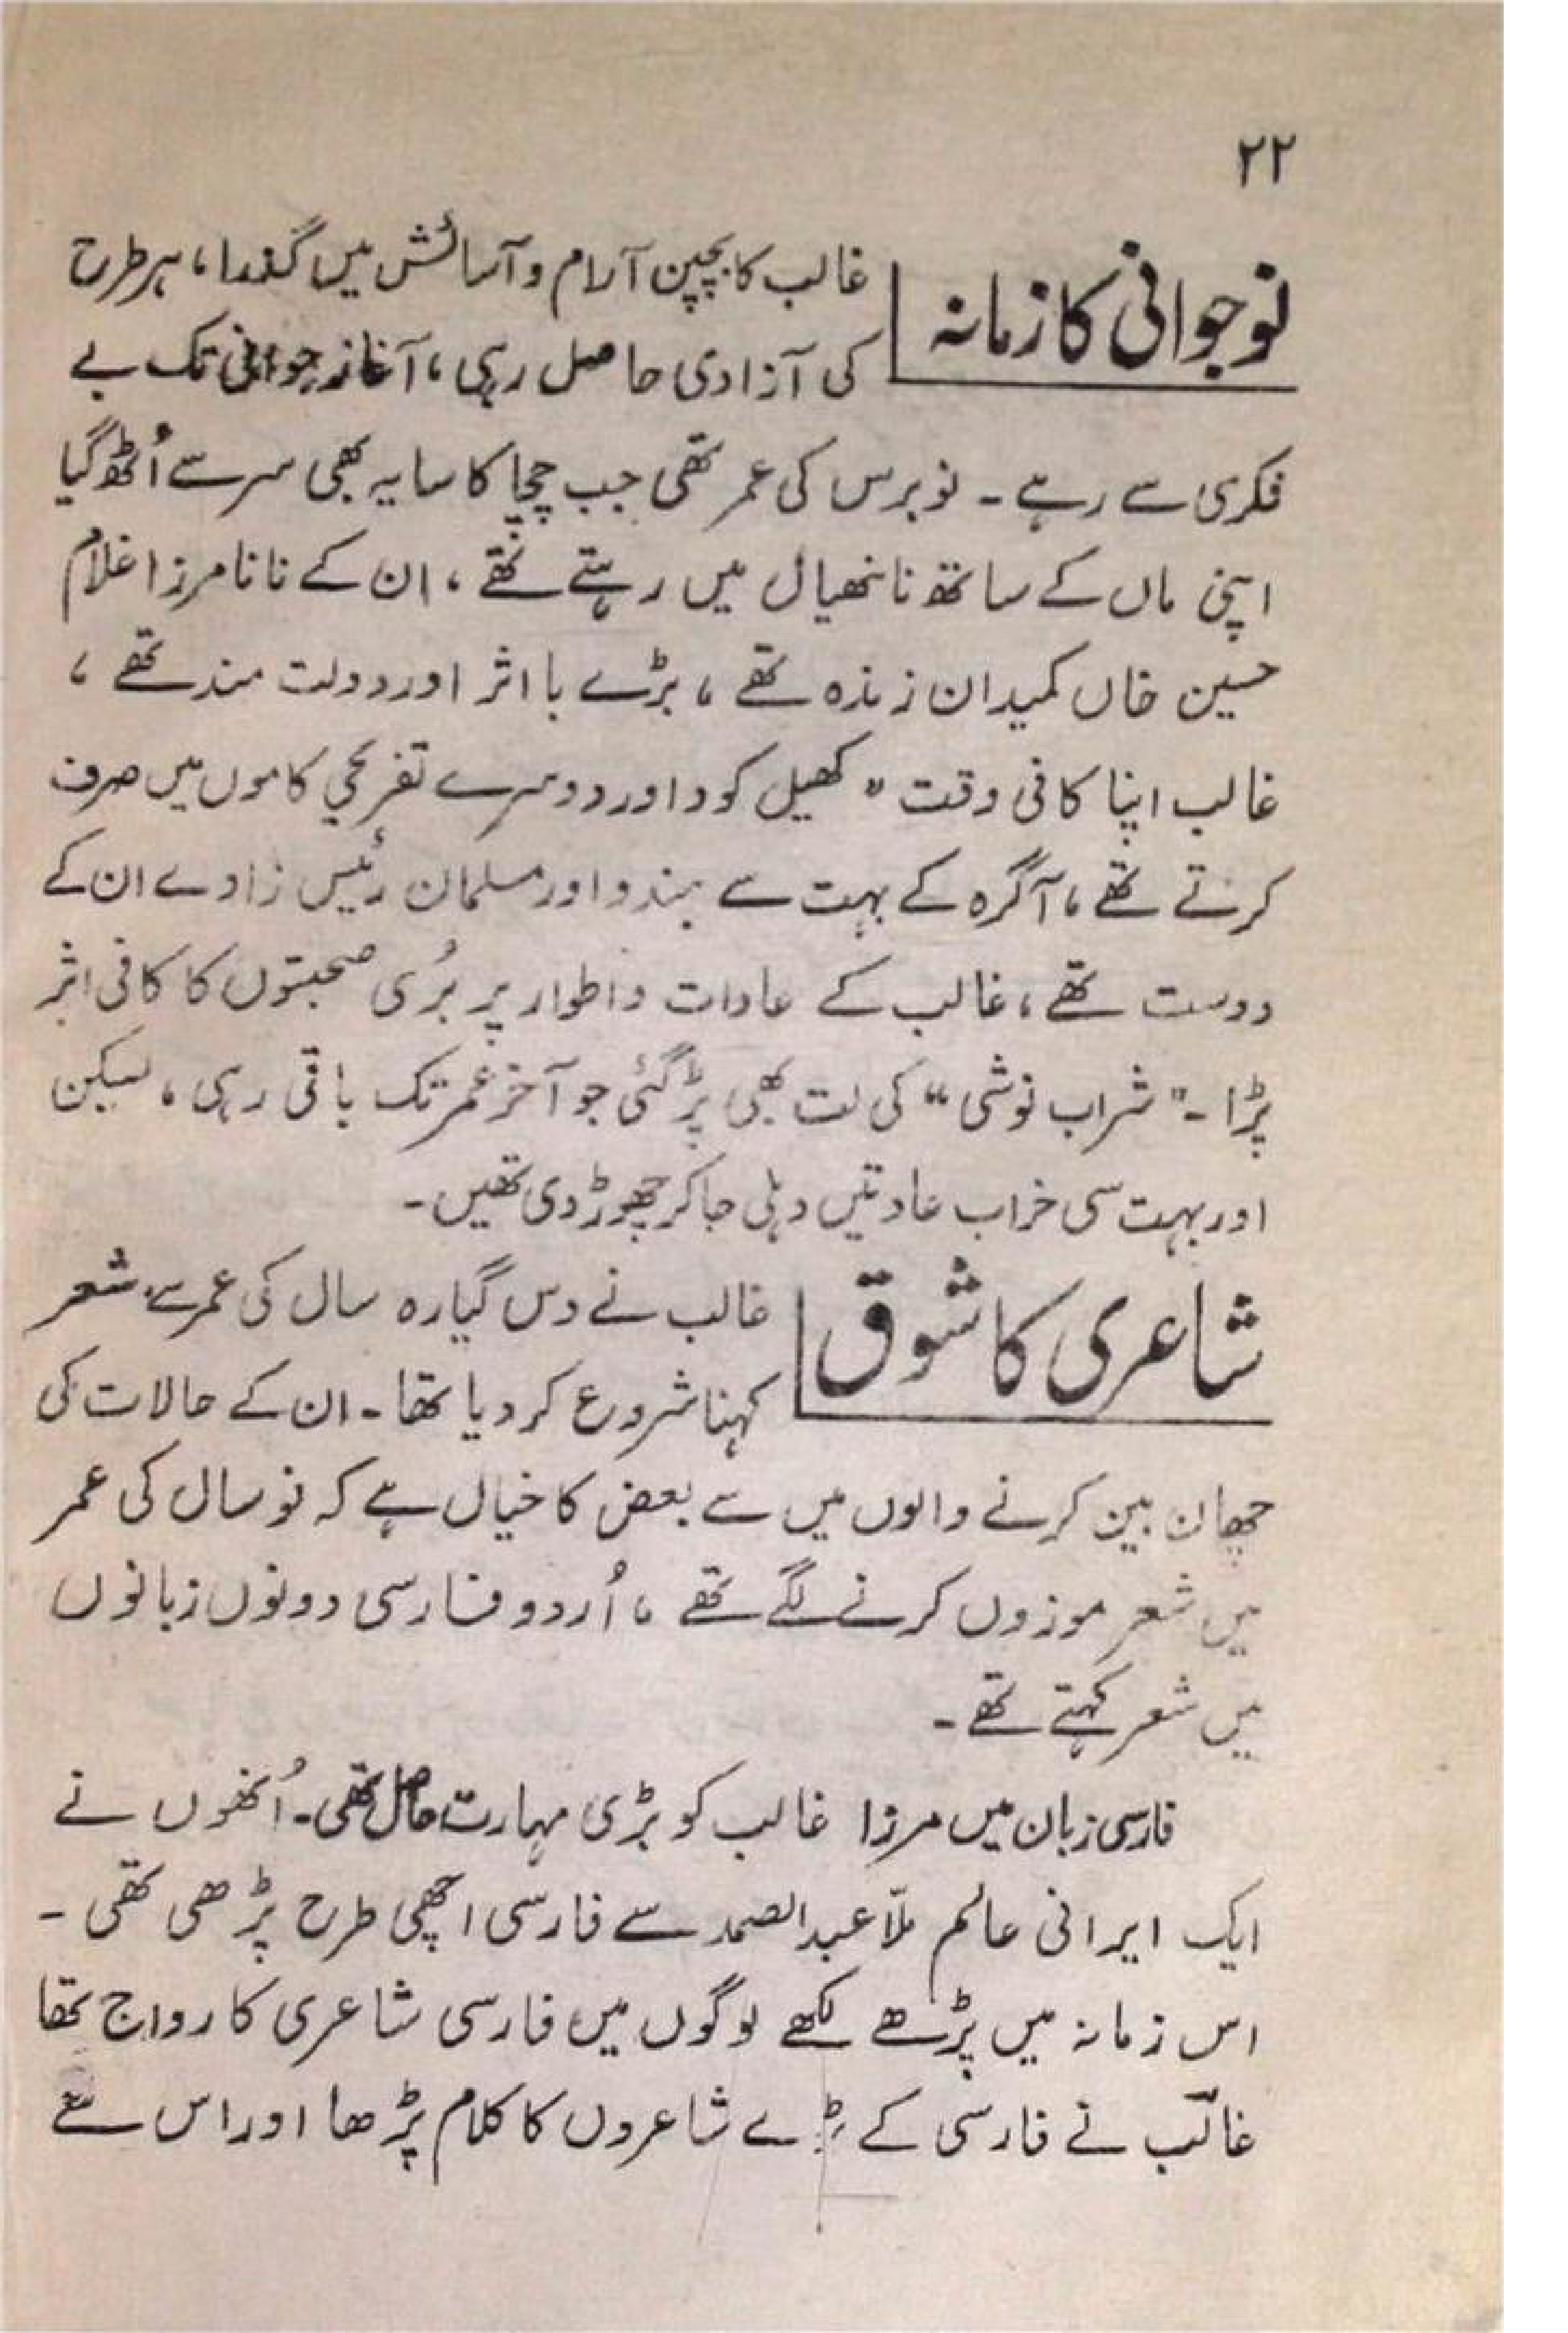 ۲۲
نوجوانی کا زمانہ
غالب کا بچپن آرام و آسائش میں گذرا، ہر طرح
کی آزادی حاصل رہی، آغاز جوانی تک بے
فکری سے رہے۔ نو برس کی عمر تھی جب چچا کا سایہ بھی سر سے اُٹھ گیا
اپنی ماں کے ساتھ نانھیال میں رہتے تھے، ان کے نانا مرزا غلام
حسین خاں کمیدان زندہ تھے، بڑے با اثر اور دولت مند تھے،
غالب اپنا کافی وقت " کھیل کود اور دوسرے تفریحی کاموں میں صرف
کرتے تھے، آگرہ کے بہت سے ہندو اور مسلمان رئیس زادے ان کے
دوست تھے، غالب کے عادات و اطوار پر بُری صحبتوں کا کافی اثر
پڑا۔ "شراب نوشی" کی لت بھی پڑ گئی جو آخر عمر تک باقی رہی، لیکن
اور بہت سی خراب عادتیں دہلی جا کر چھوڑ دی تھیں۔
شاعری کا شوق
غالب نے دس گیارہ سال کی عمر سے شعر
کہنا شروع کر دیا تھا۔ ان کے حالات کی
چھان بین کرنے والوں میں سے بعض کا خیال ہے کہ نو سال کی عمر
میں شعر موزوں کرنے لگے تھے، اُردو فارسی دونوں زبانوں
میں شعر کہتے تھے۔
فارسی زبان میں مرزا غالب کو بڑی مہارت حاصل تھی۔ اُنھوں نے
ایک ایرانی عالم ملّا عبدالصمد سے فارسی اچھی طرح پڑھی تھی۔
اس زمانہ میں پڑھے لکھے لوگوں میں فارسی شاعری کا رواج تھا
غالب نے فارسی کے بڑے شاعروں کا کلام پڑھا اور اس سے